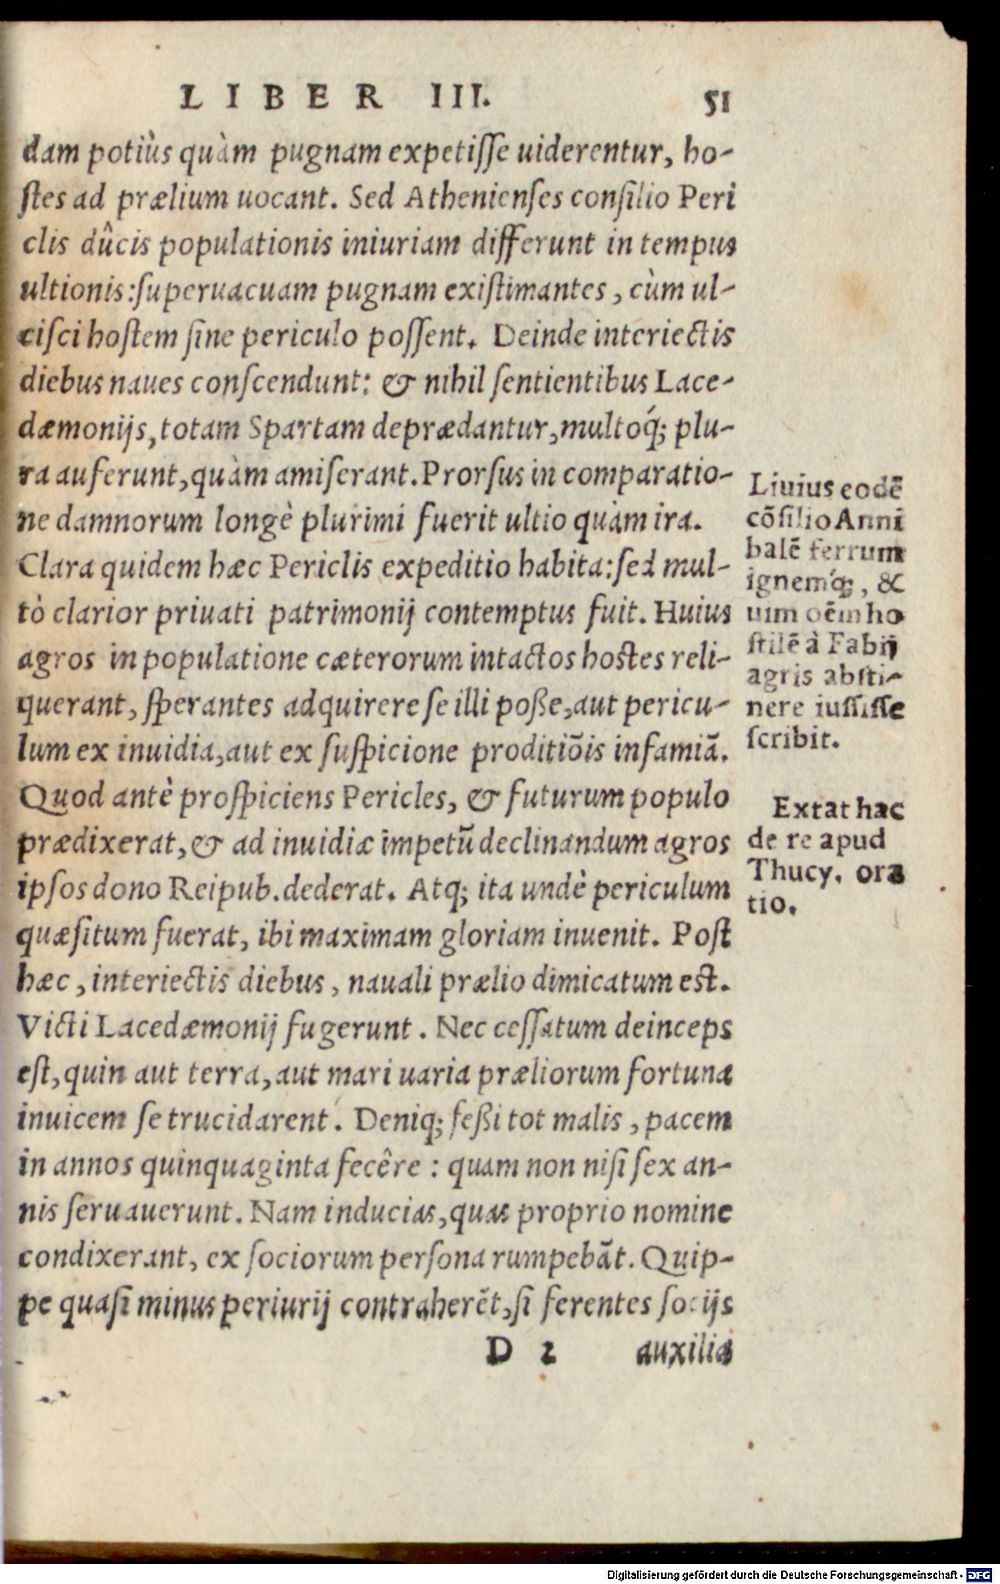 LIBER III. 51
dam potiùs quàm pugnam expetisse uiderentur, ho-
stes ad prælium uocant. Sed Athenienses consilio Peri
clis dûcis populationis iniuriam differunt in tempus
ultionis: superuacuam pugnam existimantes, cùm ul-
cisci hostem sine periculo possent. Deinde interiectis
diebus naues conscendunt: & nihil sentientibus Lace-
dæmonijs, totam Spartam deprædantur, multoq́; plu-
ra auferunt, quàm amiserant. Prorsus in comparatio-
ne damnorum longè plurimi fuerit ultio quàm ira.
Clara quidem hæc Periclis expeditio habita: sed mul-
tò clarior priuati patrimonij contemptus fuit. Huius
agros in populatione cæterorum intactos hostes reli-
querant, sperantes adquirere se illi poße, aut pericu-
lum ex inuidia, aut ex suspicione proditiōis infamiā.
Quod antè prospiciens Pericles, & futurum populo
prædixerat, & ad inuidiæ impetū declinandum agros
ipsos dono Reipub. dederat. Atq; ita undè periculum
quæsitum fuerat, ibi maximam gloriam inuenit. Post
hæc, interiectis diebus, nauali prælio dimicatum est.
Victi Lacedæmonij fugerunt. Nec cessatum deinceps
est, quin aut terra, aut mari uaria præliorum fortuna
inuicem se trucidarent. Deniq; feßi tot malis, pacem
in annos quinquaginta fecêre: quam non nisi sex an-
nis seruauerunt. Nam inducias, quas proprio nomine
condixerant, ex sociorum persona rumpebāt. Quip-
pe quasi minus periurij contraherēt, si ferentes socijs
D 2 auxilia
Liuius eodē
cōsilio Anni
balē ferrum
ignemq́;, &
uim oēm ho
stilē à Fabij
agris absti-
nere iussisse
scribit.
Extat hac
de re apud
Thucy. ora
tio.
Digitalisierung gefördert durch die Deutsche Forschungsgemeinschaft - DFG